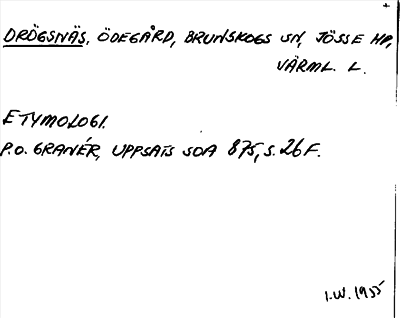 +
DRÖGSNÄS, ÖDEGÅRD, BRUNSKOGS SN, JÖSSE HD,
VÄRML. L.
ETYMOLOGI.
P.O. GRANÉR, UPPSATS SOA 875, S. 26 F.
I.W. 1955